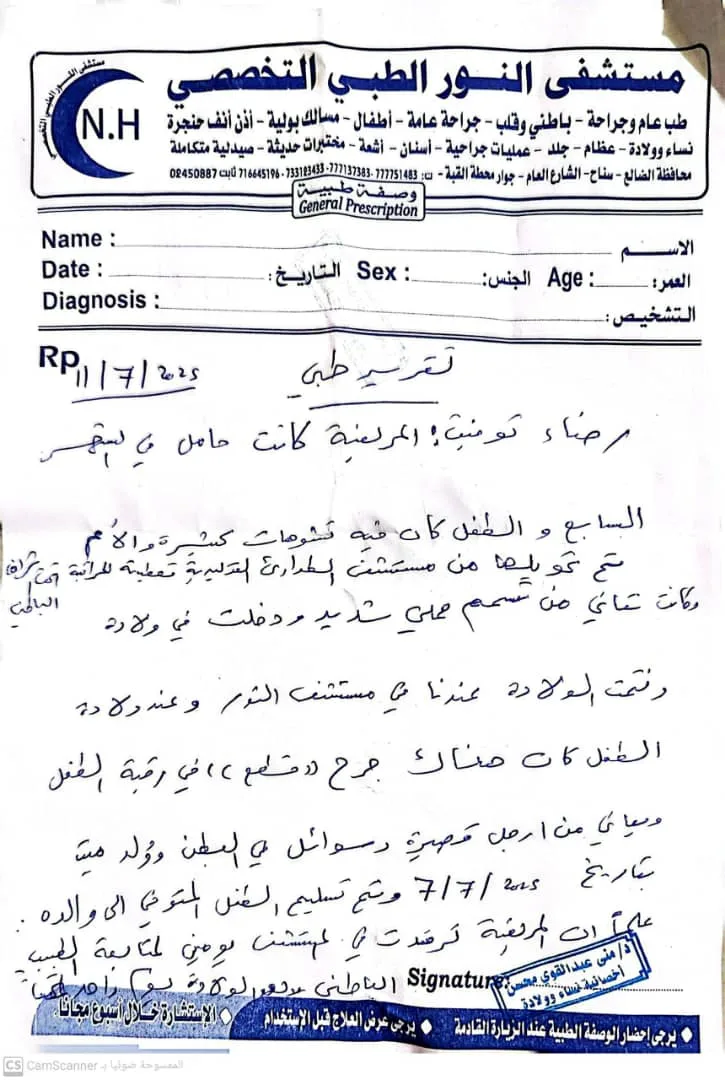 مستشفى النور الطبي التخصصي
مستشفى النور الطبي التخصصي
N.H
طب عام وجراحة - باطني وقلب - جراحة عامة - أطفال - مسالك بولية - أذن أنف حنجرة
نساء وولادة - عظام - جلد - عمليات جراحية - أسنان - أشعة - مختبرات حديثة - صيدلية متكاملة
محافظة الضالع - سناح - الشارع العام - جوار محطة القبة - ت: 777751483 - 777137383 - 733183433 - 716645196 ثابت 02450887
وصفة طبية
General Prescription
Name : الاسم
Date : التاريخ: Sex : الجنس: Age : العمر:
Diagnosis : التشخيص:
Rp
11/7/2025 تقرير طبي
المريضة كانت حامل في الشهر
السابع و الطفل كان فيه تشوهات كثيرة والأم
تم تحويلها من مستشفى الباطني
وكانت تعاني من تسمم حملي شديد ودخلت في ولادة
وتمت الولادة عندنا في مستشفى النور وعند ولادة
الطفل كان هناك جرح ((قطع)) في رقبة الطفل
ويعاني من ارجل قصيرة وسوائل في البطن وولد ميت
بتاريخ 7/7/2025 وتم تسليم الطفل المتوفي الى والده .
علماً ان المريضة ترقدت في المستشفى يومين لمتابعة الطبيب
الباطني الولادة
Signature:
د/ منى عبدالقوي محسن
أخصائية نساء وولادة
يرجى احضار الوصفة الطبية عند الزيارة القادمة ◆ يرجى عرض العلاج قبل الإستخدام ◆ الإستشارة خلال أسبوع مجاناً.
CS CamScanner الممسوحة ضوئيا بـ